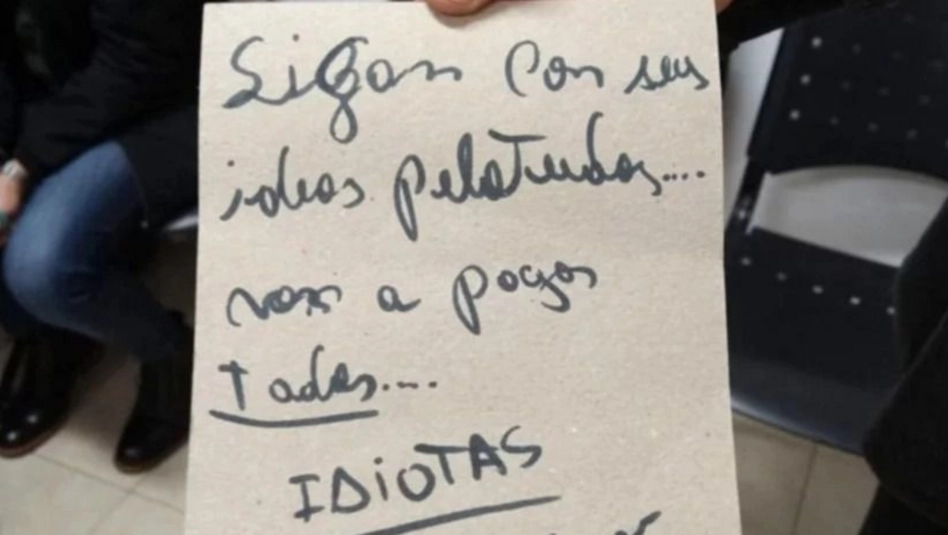 Sigan con sus
ideas pelotudas....
van a pagar
Todos....
IDiOTAS